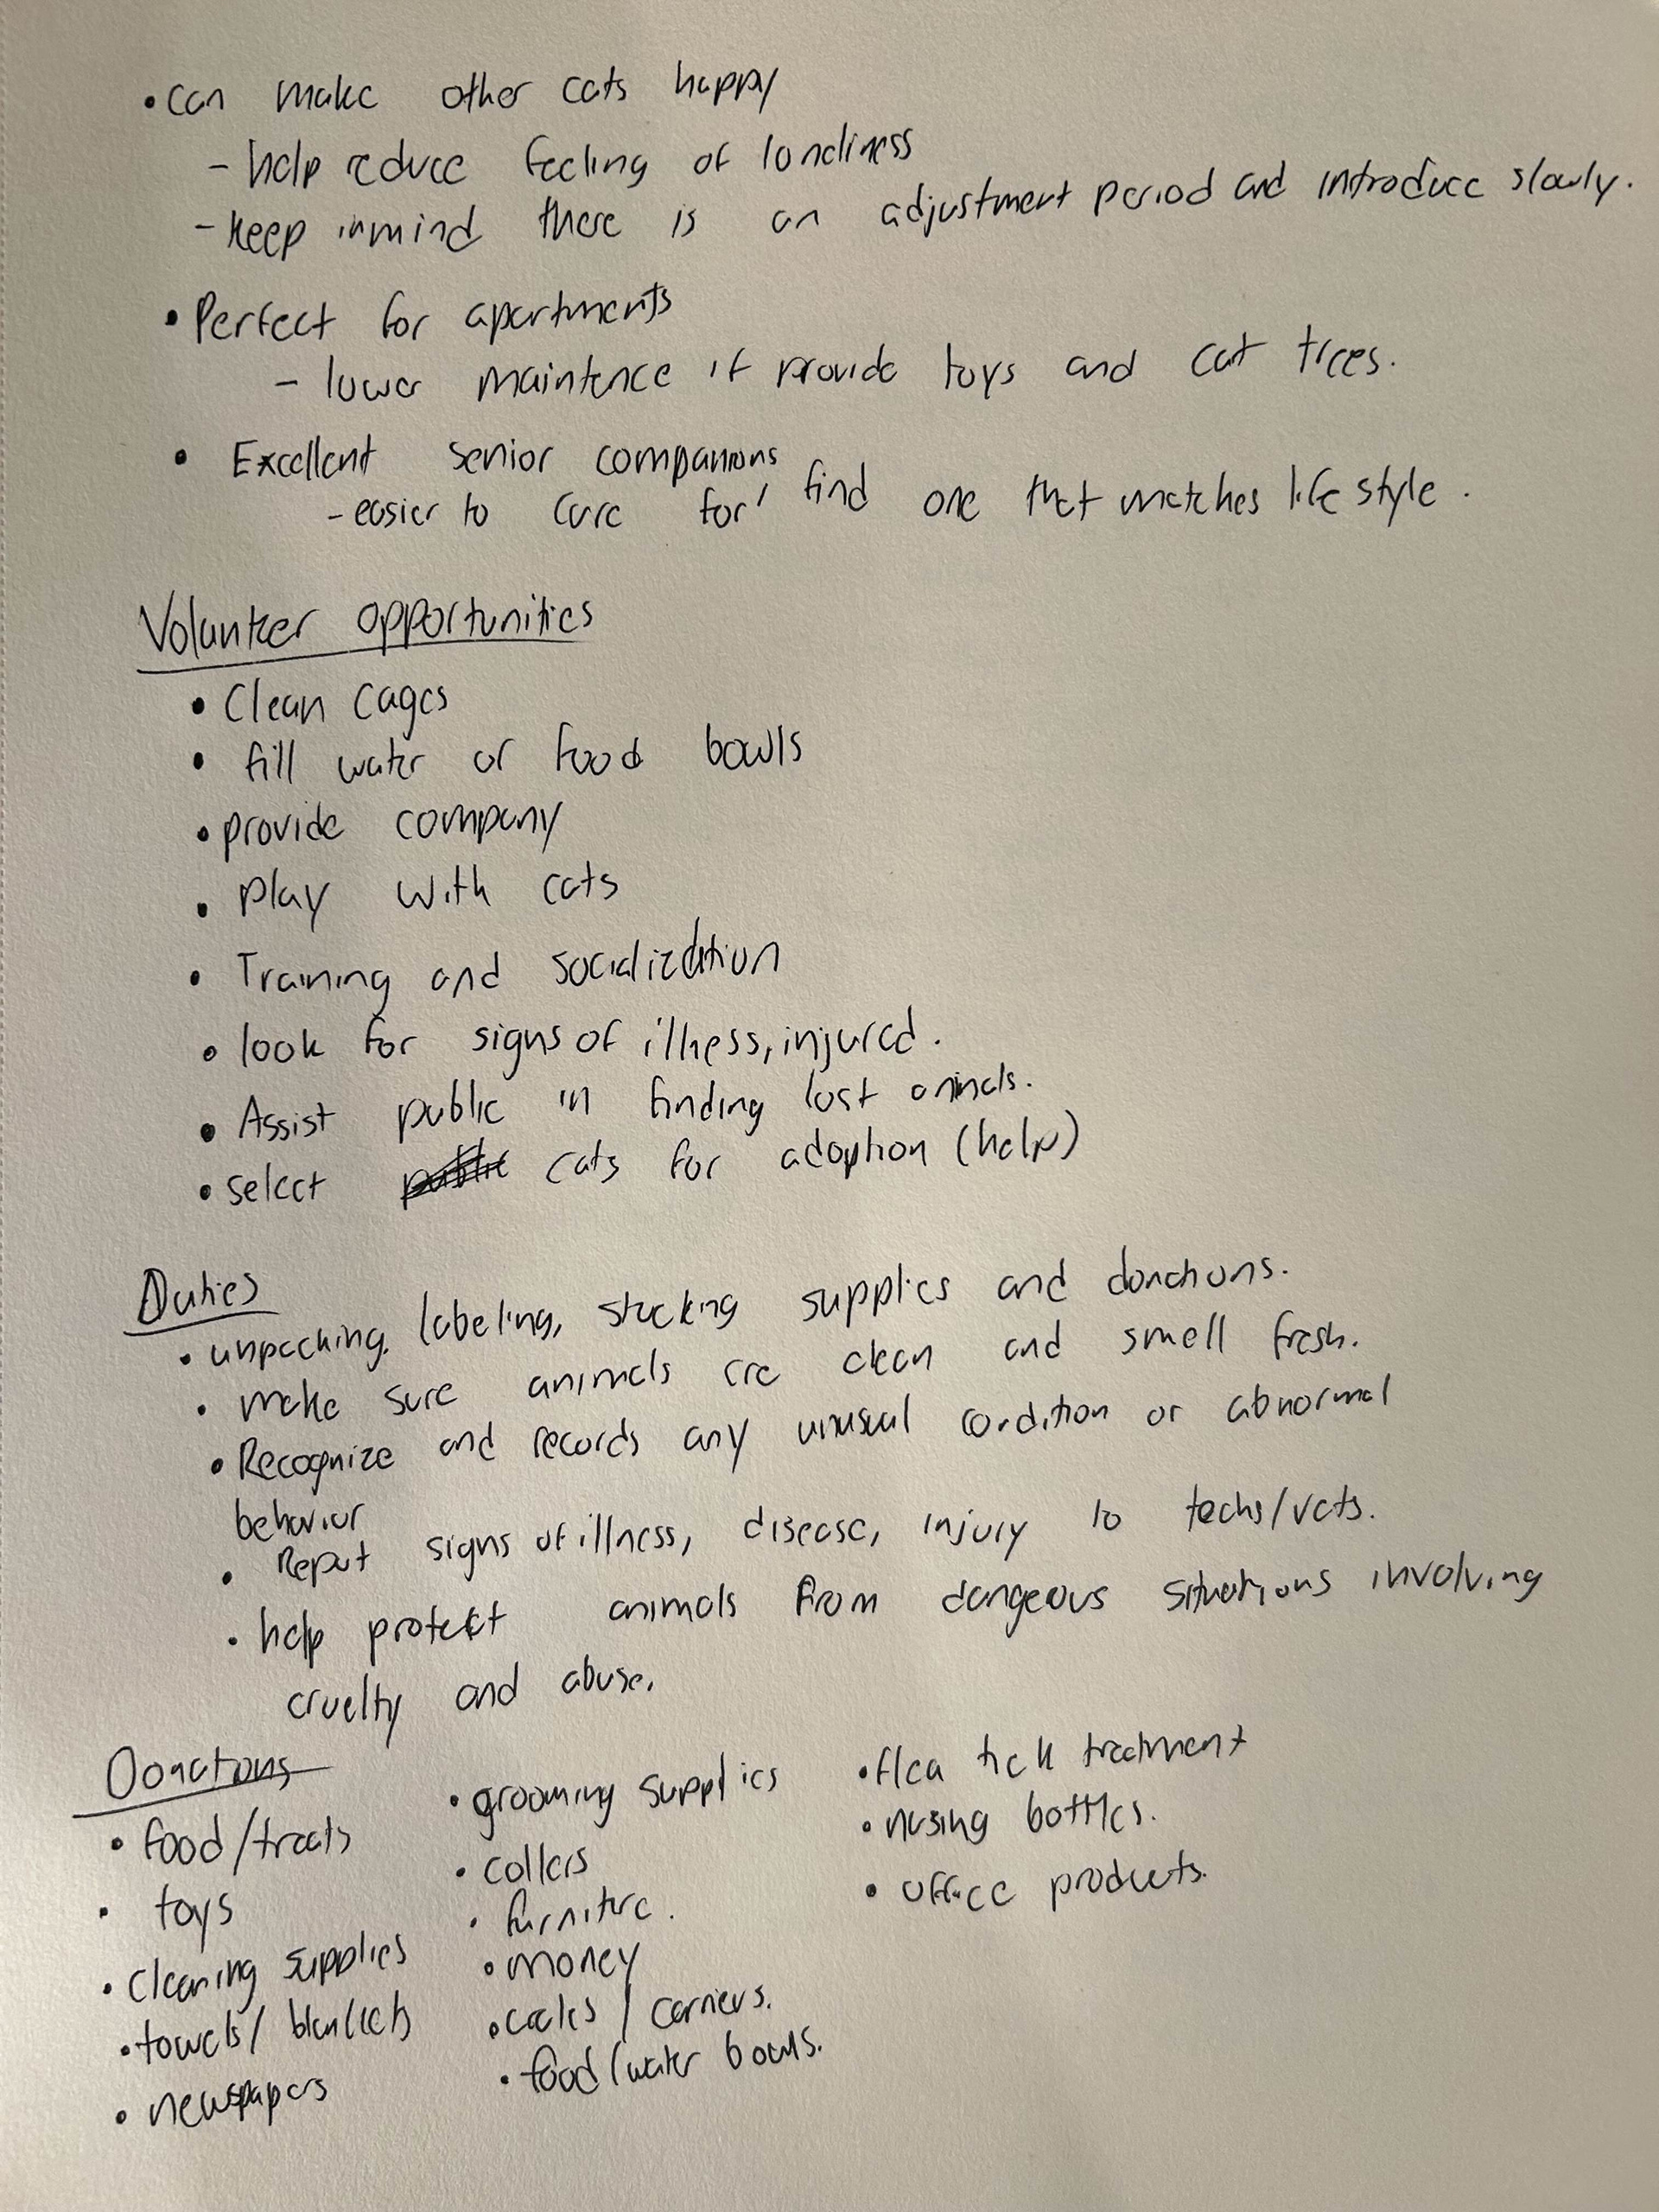 • can make other cats happy
- help reduce feeling of lonliness
- keep in mind there is an adjustment period and introduce slowly.
• Perfect for apartments
- lower maintence if provide toys and cat trees.
• Excellent senior companions
- easier to care for, find one that matches life style.
Volunteer opportunities
• Clean cages
• fill water or food bowls
• provide company
• play with cats
• Training and socialization
• look for signs of illness, injured.
• Assist public in finding lost animals.
• select public cats for adoption (help)
Duties
• unpacking, labeling, stocking supplies and donations.
• make sure animals are clean and smell fresh.
• Recognize and records any unusual condition or abnormal
behavior
• Report signs of illness, disease, injury to techs/vets.
• help protect animals from dangeous situations involving
cruelty and abuse.
Donations
• food/treats
• toys
• cleaning supplies
• towels/ blankets
• newspapers
• grooming supplies
• collers
• furniture.
• money
• / carriers.
• food/water bowls.
• flea tick treatment
• nusing bottles.
• office products.